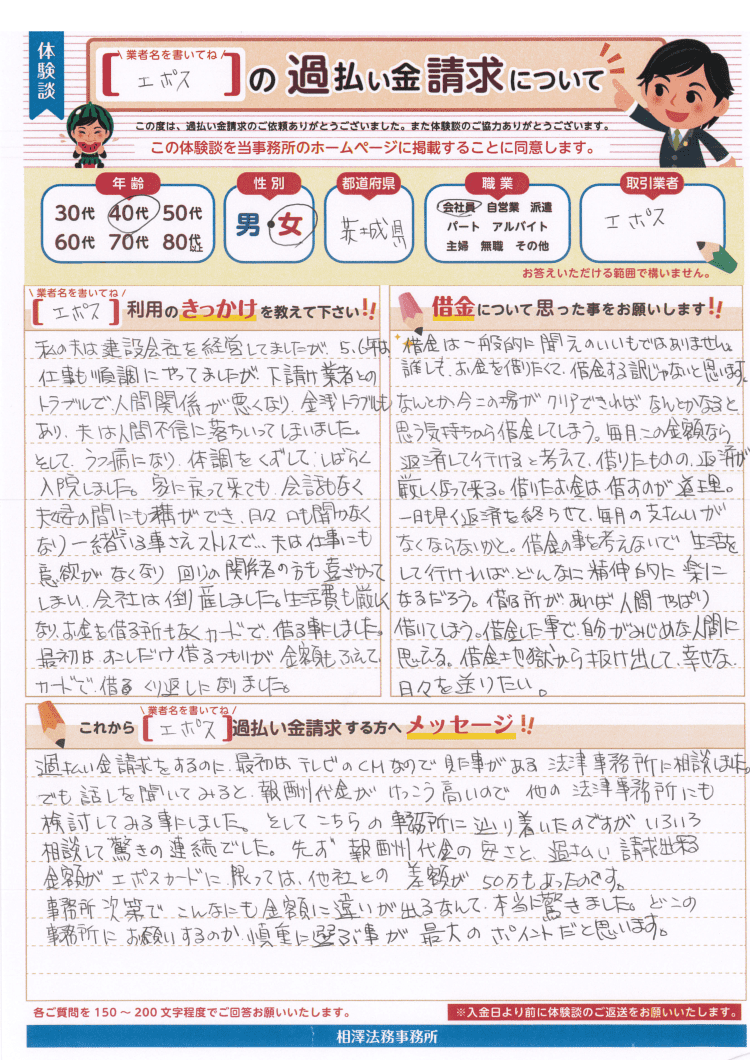 体験談
業者名を書いてね
[エポス]の過払い金請求について
この度は、過払い金請求のご依頼ありがとうございました。また体験談のご協力ありがとうございます。
この体験談を当事務所のホームページに掲載することに同意します。
年齢
30代 40代 50代
60代 70代 80代以上
性別
男・女
都道府県
茨城県
職業
会社員 自営業 派遣
パート アルバイト
主婦 無職 その他
取引業者
エポス
お答えいただける範囲で構いません。
業者名を書いてね
[エポス]利用のきっかけを教えて下さい!!
私の夫は建設会社を経営してましたが、5.6年は
仕事も順調にやってましたが、下請け業者との
トラブルで人間関係が悪くなり、金銭トラブルも
あり、夫は人間不信に落ちいってしまいました。
そして、うつ病になり、体調をくずして、しばらく
入院しました。家に戻って来ても、会話もなく
夫婦の間にも溝ができ、日々口も聞かなく
なり一緒にいる事さえストレスで…夫は仕事にも
意欲がなくなり、回りの関係者の方も遠ざかって
しまい、会社は倒産しました。生活費も厳しく
なり、お金を借る所もなくカードで、借る事にしました。
最初は少しだけ借るつもりが、金額もふえて、
カードで、借る、くり返しになりました。
借金について思った事をお願いします!!
借金は一般的に聞えのいいものではありません。
誰しも、お金を借りたくて、借金する訳じゃないと思います。
なんとか今この場がクリアできればなんとかなると
思う気持ちから借金してしまう。毎月この金額なら
返済して行けると考えて、借りたものの、返済が
厳しくなって来る。借りたお金は借すのが道理。
一日も早く返済を終らせて、毎月の支払いが
なくならないかと。借金の事を考えないで生活を
して行ければ、どんなに精伸的に楽に
なるだろう。借る所があれば人間やっぱり
借いてしまう。借金した事で、自分がみじめな人間に
思える。借金地獄から抜け出して、幸せな
日々を送りたい。
業者名を書いてね
これから[エポス]過払い金請求する方へメッセージ!!
過払い金請求をするのに、最初はテレビのCMなので見た事がある法律事務所に相談しました。
でも話しを聞いてみると、報酬代金がけっこう高いので他の法律事務所にも
検討してみる事にしました。そしてこちらの事務所に辿り着いたのですがいろいろ
相談して驚きの連続でした。先ず報酬代金の安さと、過払い請求出来る
金額がエポスカードに限っては、他社との差額が50万もあったのです。
事務所次第で、こんなにも金額に違いが出るなんて、本当に驚きました。どこの
事務所にお願いするのか、慎重に選ぶ事が最大のポイントだと思います。
各ご質問を150~200文字程度でご回答お願いいたします。
※入金日より前に体験談のご返送をお願いいたします。
相澤法務事務所